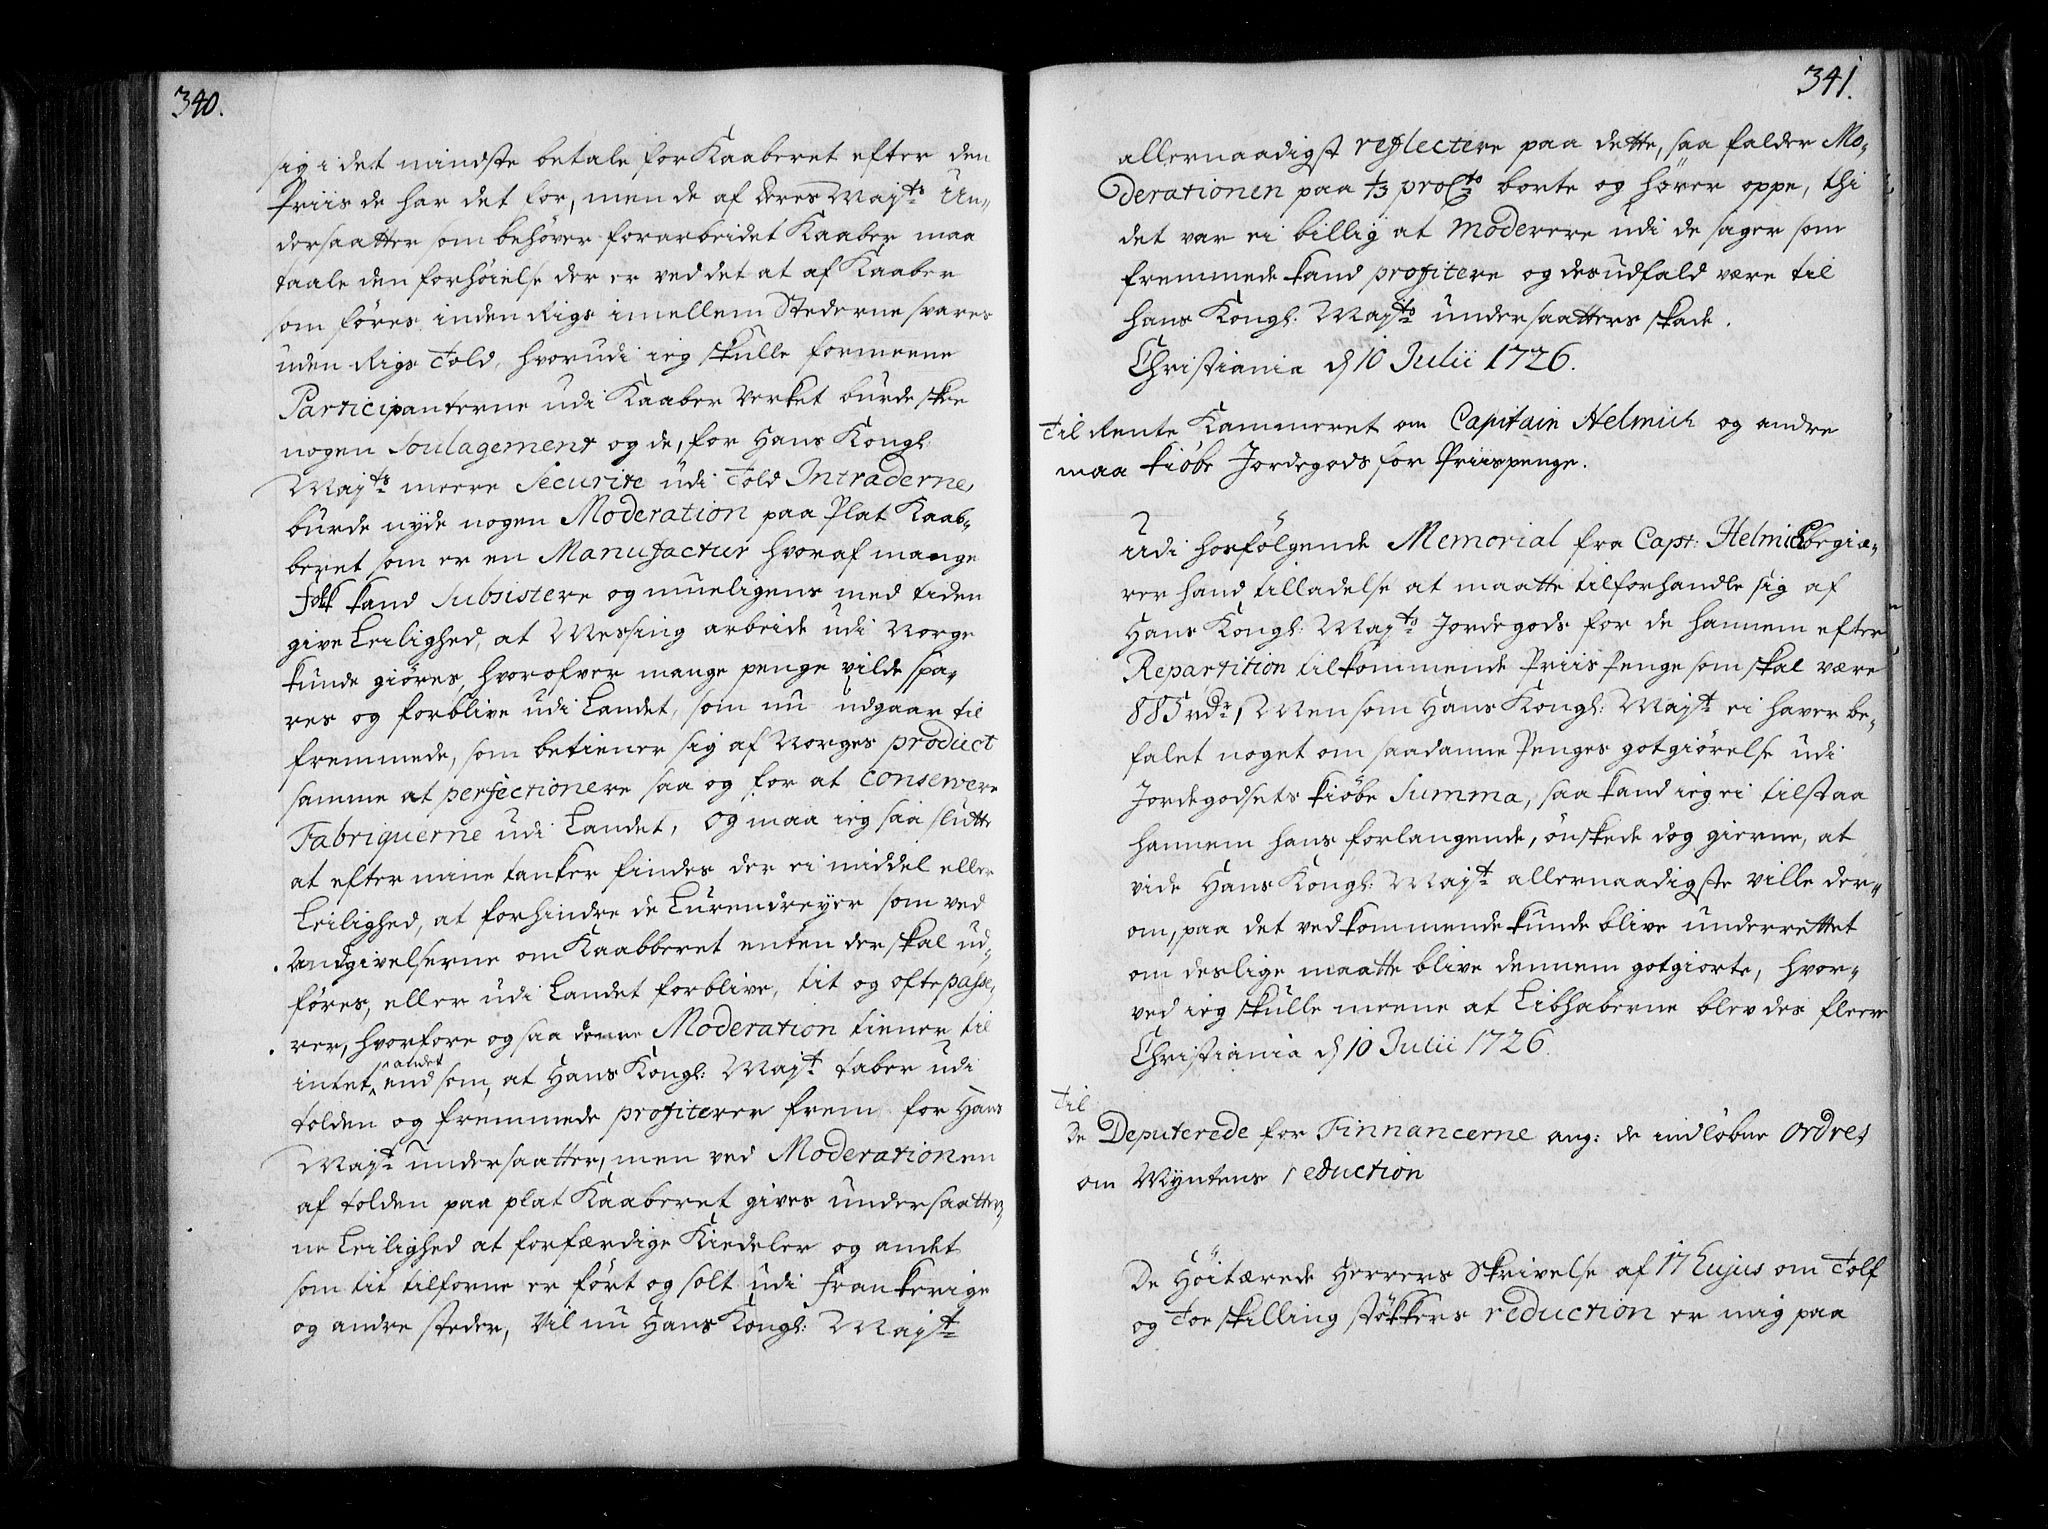 340.
sig i det mindste betale for Kaaberet efter den
Priis de har det for, men de af deres Mayts Un-
dersaatter som behöver forarbeidet Kaaber maa
taale den forhöielse der er ved det at af Kaaber
som föres inden Rigs imellem Stederne svares
uden Rigs Told, hvorudi ieg skulle formeene
Participanterne udi Kaaber Verket burde skee
nogen Soulagement og de, for Hans Kongl:
Mayts meere Securite udi Told Intraderne,
burde nyde nogen Moderation paa Plat Kaab-
beret som er en Manufactur hvoraf mange
Folk kand Subsistere og mueligens med tiden
give Leilighed, at Messing arbeide udi Norge
kunde giöres, hvorofver mange penge vilde spa-
res og forblive udi Landet, som nu udgaar til
fremmede, som betiener sig af Norges product
samme at perfectionere saa og for at conservere
Fabriquerne udi Landet, og maa ieg saa slutte
at efter mine tanker findes der ei middel eller
Leilighed, at forhindre de Lurendreyer som ved
Andgivelserne om Kaabberet enten der skal ud-
föres, eller udi Landet forblive, tit og ofte passe-
rer, hvorfore og saa denne Moderation tiener til
intet andet end som, at Hans Kongl: Mayt taber udi
tolden og fremmede profiterer frem for Hans
Mayts undersaatter, men ved Moderationen
af tolden paa plat Kaaberet gives undersaatter-
ne Leilighed at forfærdige Kiedeler og andet
som tit tilforne er fört og solt udi Frankerige
og andre steder, Vil nu Hans Kongl: Mayt
341.
allernaadigst reflectere paa dette, saa falder Mo-
derationen paa 1/3 proCto borte og hörer oppe, thi
det var ei billig at moderere udi de sager som
fremmede kand profitere og desudfald være til
hans Kongl: Mayts undersaatters skade.
Christiania d 10 Julii 1726.
Til Rente Kammeret om Capitain Helmich og andre
maa kiöbe Jordegods for Priispenge.
Udi hosfölgende Memorial fra Capt: Helmich begiæ-
rer hand tilladelse at maatte tilforhandle sig af
Hans Kongl: Mayts Jordegods for de hannem efter
Repartition tilkommende Priis Penge som skal være
885 rdr, Men som Hans Kongl: Mayt ei haver be-
falet noget om saadanne Penges gotgiörelse udi
Jordegodsets kiöbe Summa, saa kand ieg ei tilstaa
hannem hans forlangende, önskede dog gierne, at
vide Hans Kongl: Mayts allernaadigste ville der-
om, paa det vedkommende kunde blive underrettet
om deslige maatte blive dennem gotgiorte, hvor-
ved ieg skulle meene at Libhaberne blev des fleere
Christiania d 10 Julii 1726.
Til
De Deputerede for Finnancerne ang: de indlöbne ordres
om Myntens reduction
De Höitærede Herrers Skrivelse af 17 hujus om Tolf
og Toe skilling stökkers reduction er mig paa